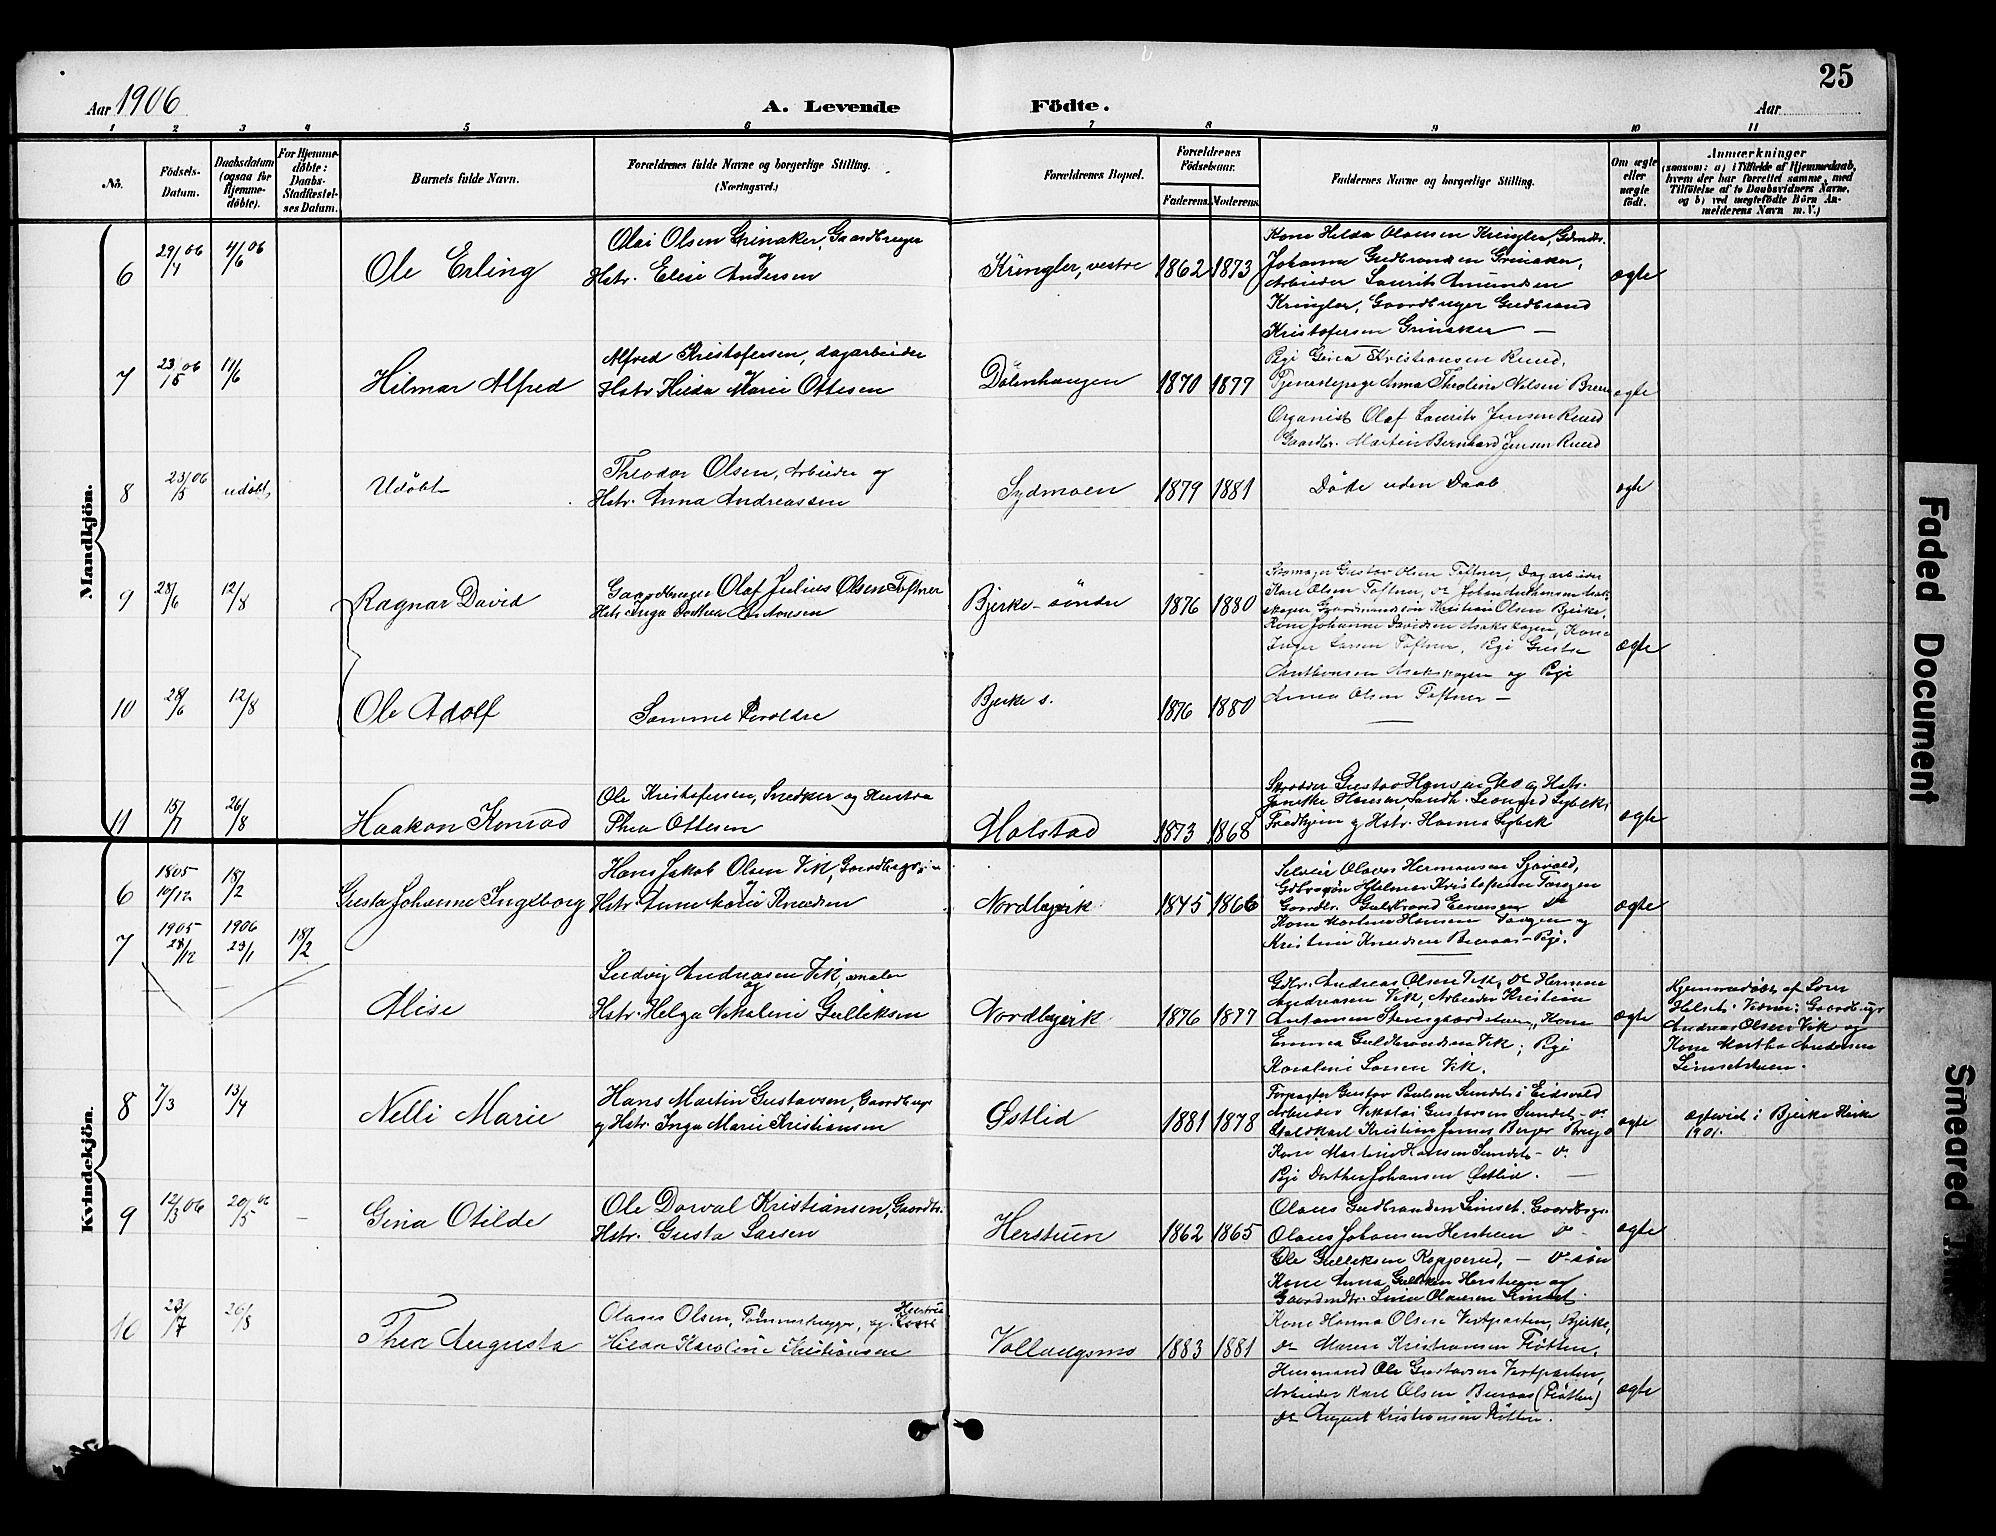 25
Aar 1906
A. Levende Födte.
Aar
1 2 3 4 5 6 7 8 9 10 11
No.
Födsels-Datum.
Daabsdatum (ogsaa for Hjemmedöbte).
For Hjemmedöbte: Daabs-Stadfæstelses Datum.
Barnets fulde Navn.
Forældrenes fulde Navne og borgerlige Stilling.
(Næringsvei.)
Forældrenes Bopæl.
Forældrenes Födselsaar.
Faderens. Moderens.
Faddernes Navne og borgerlige Stilling.
Om ægte eller uægte født.
Anmærkninger
(saasom: a) i Tilfælde af Hjemmedaab, hvem der har forrettet samme, med Tilföielse af to Daabsvidners Navne, og b) ved uægtefödte Börn Anmelderens Navn m. V.)
Mandkjön.
6 29/4 06 4/6 06 Ole Erling
Olai Olsen Grinaker, Gaardbruger
og
Hstr. Elise Andersen
Kringler, vestre 1862 1873
Kone Hilda Olausen Kringler, Gdmdtr.
Johanne Gudbrandsen Grinaker,
Arbeider Laurits Amundsen
Kringler, Gaardbruger Gudbrand
Kristofersen Grinaker —
ægte
7 23/5 06 4/6 Hilmar Alfred
Alfred Kristofersen, dagarbeider
og
Hstr Hilda Marie Ottesen
Dölenhaugen 1870 1877
Pige Gina Kristiansen Ruud,
Tjenestepige Anna Theoline Nilsen
Organist Olaf Laurits Jensen Ruud
Gaardbr. Martin Bernhard Jensen Ruud
ægte
8 23/5 06 udöbt Udöbt
Theodor Olsen, Arbeider og
Hstr. Anna Andreassen
Sydmoen 1879 1881
Döde uden Daab
ægte
9 28/6 12/8 Ragnar David
Gaardbruger Olaf Julius Olsen Toftner
Hstr. Inga Dorthea Antonsen
Bjerke - söndre 1876 1880
Skomager Gustav Olsen Toftner, Dagarbeider
Karl Olsen Toftner, do Johan Anthonsen Asak-
skogen, Gaardmandssön Kristian Olsen Bjerke,
Kone Johanne Davidsen Asakskogen, Kone
Inger Larsen Toftner, Pige Gusta
Anthonsen Asakskogen og Pige
Anna Olsen Toftner —
ægte
10 28/6 12/8 Ole Adolf
Samme Foroldre
Bjerke s. 1876 1880
11 15/7 26/8 Haakon Konrad
Ole Kristofersen, Snedker og Hustru
Thea Ottesen
Holstad 1873 1868
Skrædder Gustav Hansen og Hstr.
Janette Hansen, Landh. Leonard Lybek,
Fredheim og Hstr. Hanna Lybek
ægte
Kvindekjön.
6 1905 10/12 18/2 Gusta Johanne Ingeborg
Hans Jakob Olsen Vik, Gaardbrger
og
Hstr. Anne Marie Knudsen
Nordbjerk 1845 1866
Olaves Hermansen Sjøvold,
Gdbrssøn Hilmar Kristofersen Tangen
Gaardbr. Guldbrand Do
Kone Martine Hansen Tangen og
Kristine Knudsen Buraas - Pige.
ægte
7 1905 28/12 1906 23/1 18/2 Alise
Ludvig Andreasen Vik, maler
og
Hstr. Helga Nikoline Gulliksen
Nordbjerk 1876 1877
Gdbr. Andreas Olsen Vik, do Herman
Andreasen Vik, Arbeider Kristian
Antonsen Stensgaardstuen, Kone
Emma Guldbrandsen Vik, Pige
Karoline Larsen Vik.
ægte
Hjemmedöbt af Lars
Vidner: Gaardbrgr
Andreas Olsen Vik og
Kone Martha Andersen
8 7/3 13/4 Nelli Marie
Hans Martin Gustavsen, Gaardbrgr
og Hstr. Inga Marie Kristiansen
Østlid 1881 1878
Forpagter Gustav Paulsen Sundet i Eidsvold
Arbeider Nikolai Gustavsen Sundet — do
Staldkarl Kristian Jensen Berger
Kone Martine Hansen Sundet — do
Pige Dorthea Johansen Østlid. —
ægte
ægtevid i Bjerke Kirke
1901.
9 12/3 06 20/5 06 — Gina Otilde
Ole Dorval Kristiansen, Gaardbr.
Hstr. Gusta Larsen
Herstuen 1862 1865
Olaus Gudbrandsen Limset, Gaardbrgr.
Olaus Johansen Herstuen do
Ole Gulliksen Kopperud, — do sön
Kone Anna Gulliksen Herstuen og
Gaardmdtr. Lina Olausen Limset.
ægte
10 23/7 26/8 Thea Augusta
Olaus Olsen, Tömmerhugger, og Hustru
Hilda Karoline Kristiansen
Vollaugsmo 1883 1881
Kone Hanna Olsen Vestparten, Bjerke,
do Maren Kristiansen Fløtten,
Husmand Ole Gustavsen Vestparten,
Arbeider Karl Olsen Buraas (Fløtten)
do August Kristiansen Fløtten.
ægte
Faded Document
Smeared